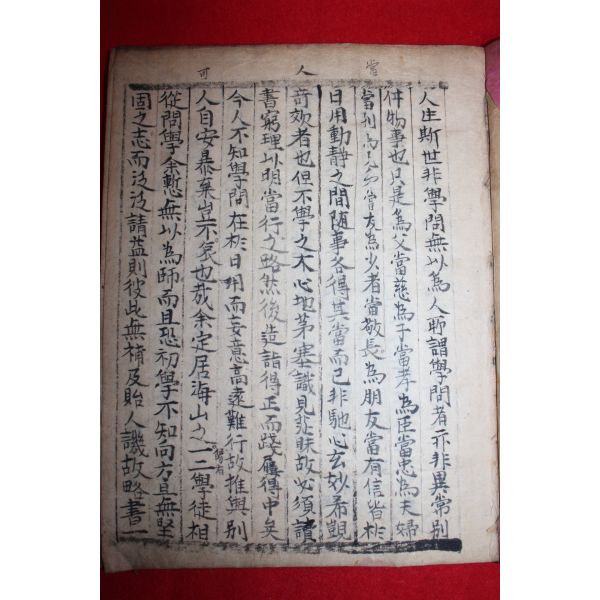 當 人 可
人生斯世非學問無以為人所謂學問者亦非異常別
件物事也只是為父當慈為子當孝為臣當忠為夫婦
當別為兄弟當友為少者當敬長為朋友當有信皆於
日用動靜之間随事各得其當而已非馳心玄妙希覬
奇效者也但不學之木心地茅塞識見茫昧故必須讀
書窮理以明當行之路然後造詣得正而踐履得中矣
今人不知學問在於日用而妄意高遠難行故推與別
人自安暴棄豈不哀也哉余定居海山之陽有一二學徒相
從問學余慙無以為師而且恐初學不知向方且無堅
固之志而泛泛請益則彼此無補反貽人譏故略書一